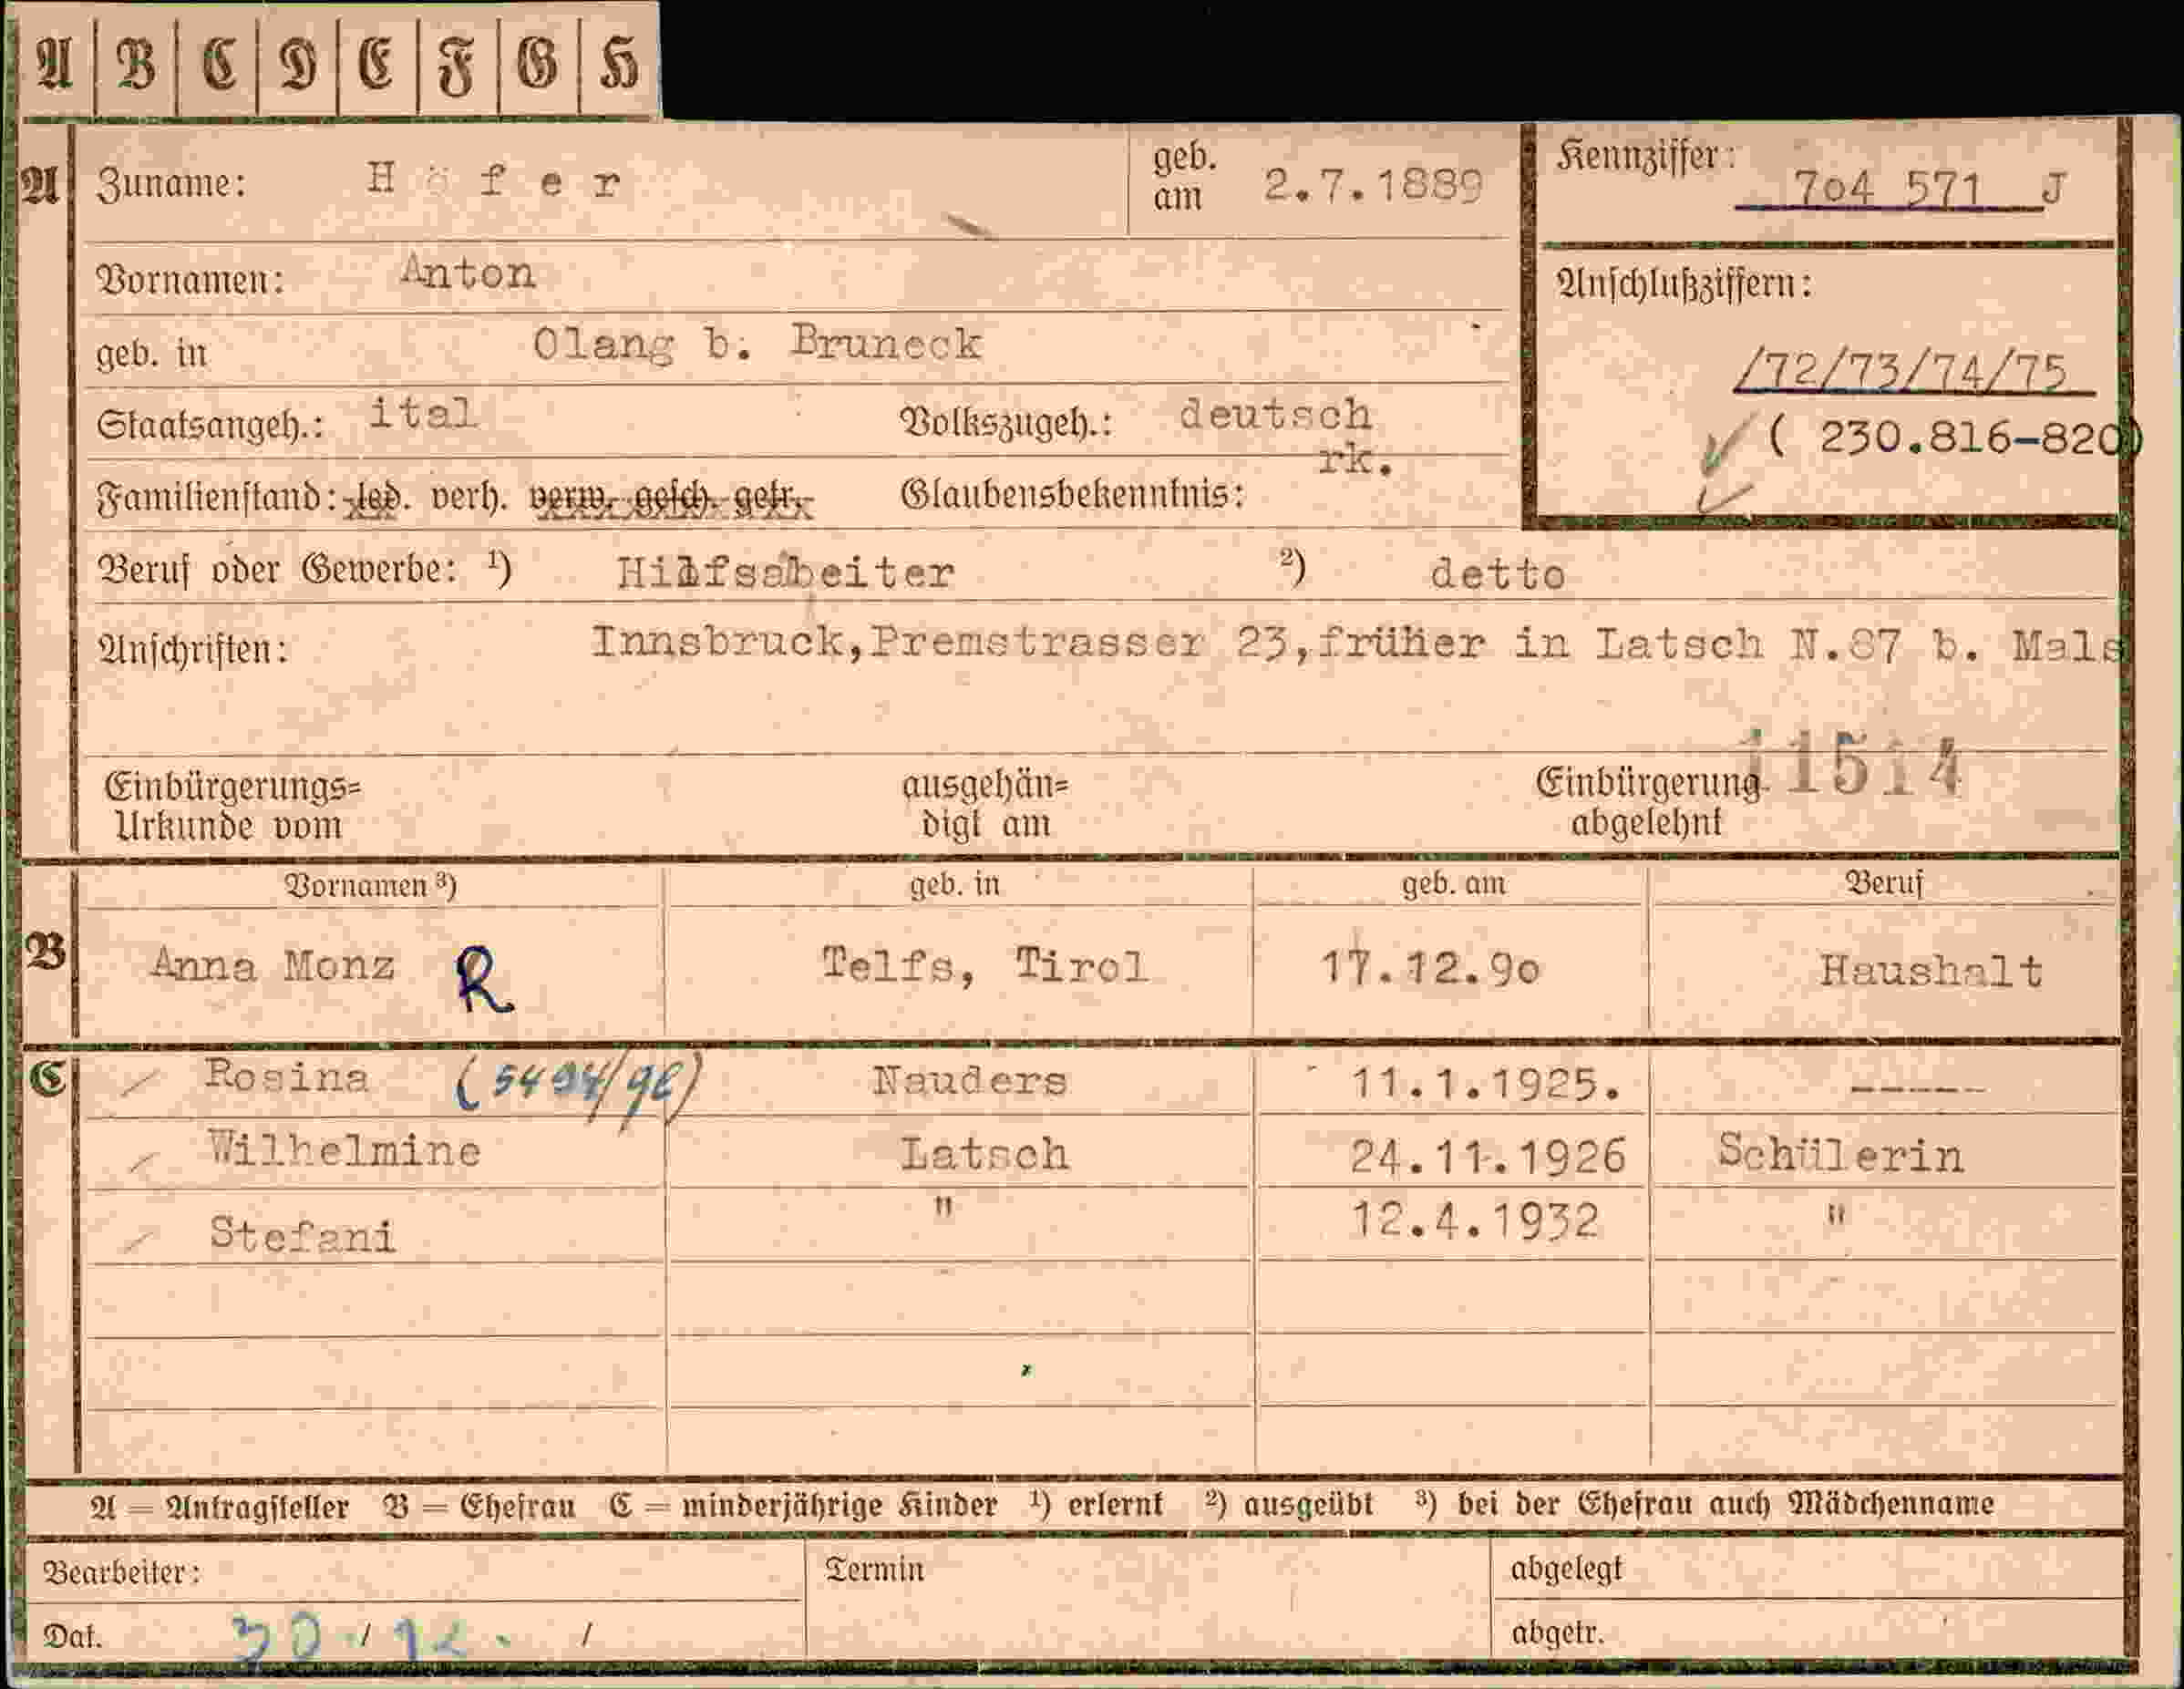 A B C D E F G H
A Zuname: Höfer geb. am 2.7.1889 Kennziffer: 7o4 571 J
Vornamen: Anton Anschlußziffern:
geb. in Olang b. Bruneck /72/73/74/75
Staatsangeh.: ital Volkszugeh.: deutsch ( 230.816-820)
Familienstand: led. verh. verw. gesch. getr. Glaubensbekenntnis: rk.
Beruf oder Gewerbe: ¹) Hilfsabeiter ²) detto
Anschriften: Innsbruck,Premstrasser 23,früher in Latsch N.87 b. Mals
11514
Einbürgerungs= ausgehän= Einbürgerung
Urkunde vom digt am abgelehnt
Vornamen ³) geb. in geb. am Beruf
B Anna Monz R Telfs, Tirol 17.12.9o Haushalt
C Rosina Nauders 11.1.1925. -----
Wilhelmine Latsch 24.11.1926 Schülerin
Stefani " 12.4.1932 "
A = Antragsteller B = Ehefrau C = minderjährige Kinder ¹) erlernt ²) ausgeübt ³) bei der Ehefrau auch Mädchenname
Bearbeiter: Termin abgelegt
Dat. 30 / 12. / abgetr.